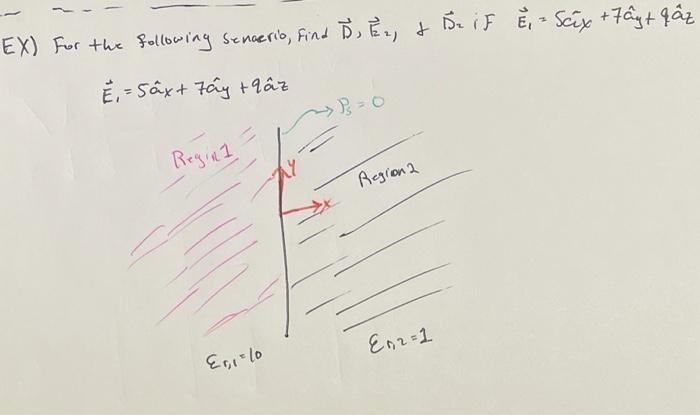 EX) For the following scnaerio, Find D⃗, E⃗₂, & D⃗₂ iF E⃗₁ = 5âx + 7ây + 9âz
E⃗₁ = 5âx + 7ây + 9âz
ρs = 0
Region 1
Y
Region 2
x
εr,1 = 10
εr,2 = 1